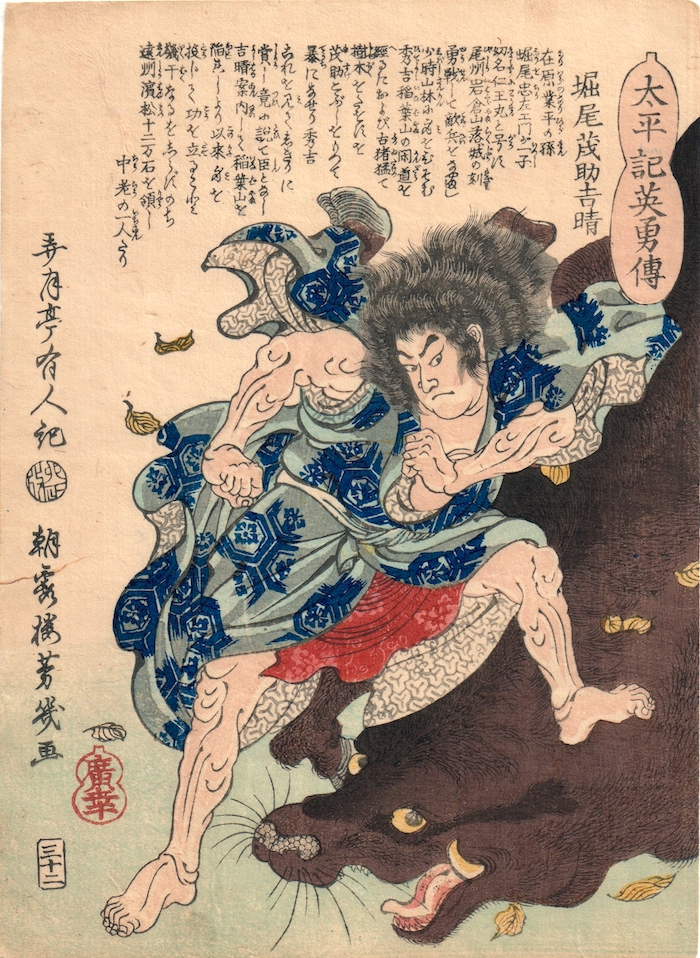 太平記英勇傳
堀尾茂助吉晴
在原業平の孫
堀尾忠左エ門が一子
幼名仁王丸と号す
尾州岩倉山落城の刻
勇戦して敵兵を
小時山林に身を
秀吉稲葉山の間道を
経るにおよび古猪猛て
樹木を
茂助
秀吉
これを見て
賞し竟に説て臣となし
吉晴案内して稲葉山を
陥せしより以来身を
投じて功を立ること
幾千なるをしらずのち
遠州濱松十二万石を領し
中老の一人たり
弄月亭有人記
朝霞楼芳幾画
廣幸
三十二